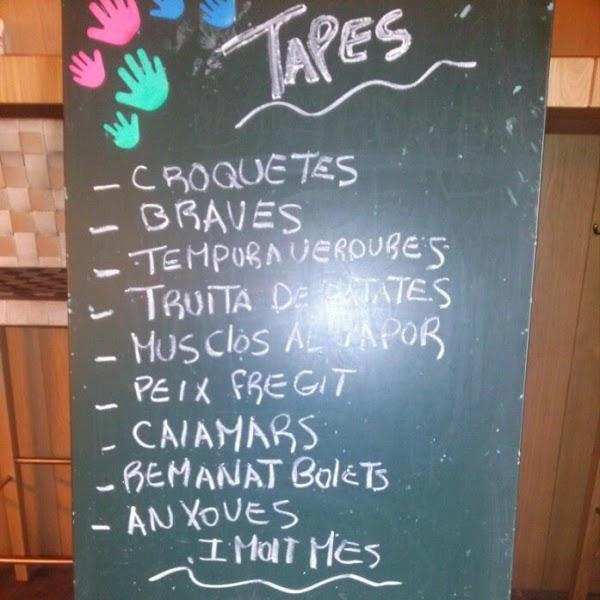 TAPES
- CROQUETES
- BRAVES
- TEMPURA VERDURES
- TRUITA DE PATATES
- MUSCLOS AL VAPOR
- PEIX FREGIT
- CALAMARS
- REMANAT BOLETS
- ANXOVES
I MOLT MES